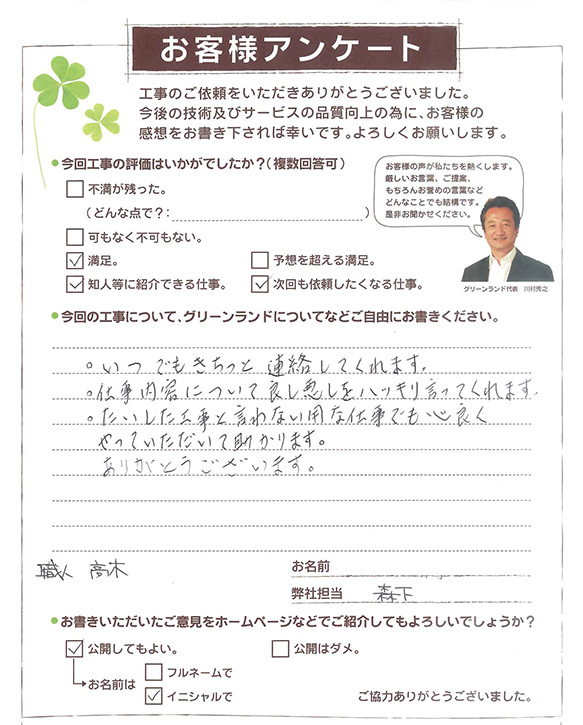 お客様アンケート
工事のご依頼をいただきありがとうございました。
今後の技術及びサービスの品質向上の為に、お客様の
感想をお書き下されば幸いです。よろしくお願いします。
今回工事の評価はいかがでしたか？（複数回答可）
お客様の声が私たちを熱くします。
厳しいお言葉、ご提案、
もちろんお誉めの言葉など
どんなことでも結構です。
是非お聞かせください。
不満が残った。
（どんな点で？:　）
可もなく不可もない。
満足。　予想を超える満足。
知人等に紹介できる仕事。　次回も依頼したくなる仕事。
グリーンランド代表　川村秀之
今回の工事について、グリーンランドについてなどご自由にお書きください。
。いつでもきちっと連絡してくれます。
。仕事内容について良し悪しをハッキリ言ってくれます。
。たいした工事と言わない用な仕事でも心良く
やっていただいて助かります。
ありがとうございます。
職人　高木
お名前
弊社担当　森下
お書きいただいたご意見をホームページなどでご紹介してもよろしいでしょうか？
公開してもよい。　公開はダメ。
お名前は　フルネームで
イニシャルで
ご協力ありがとうございました。